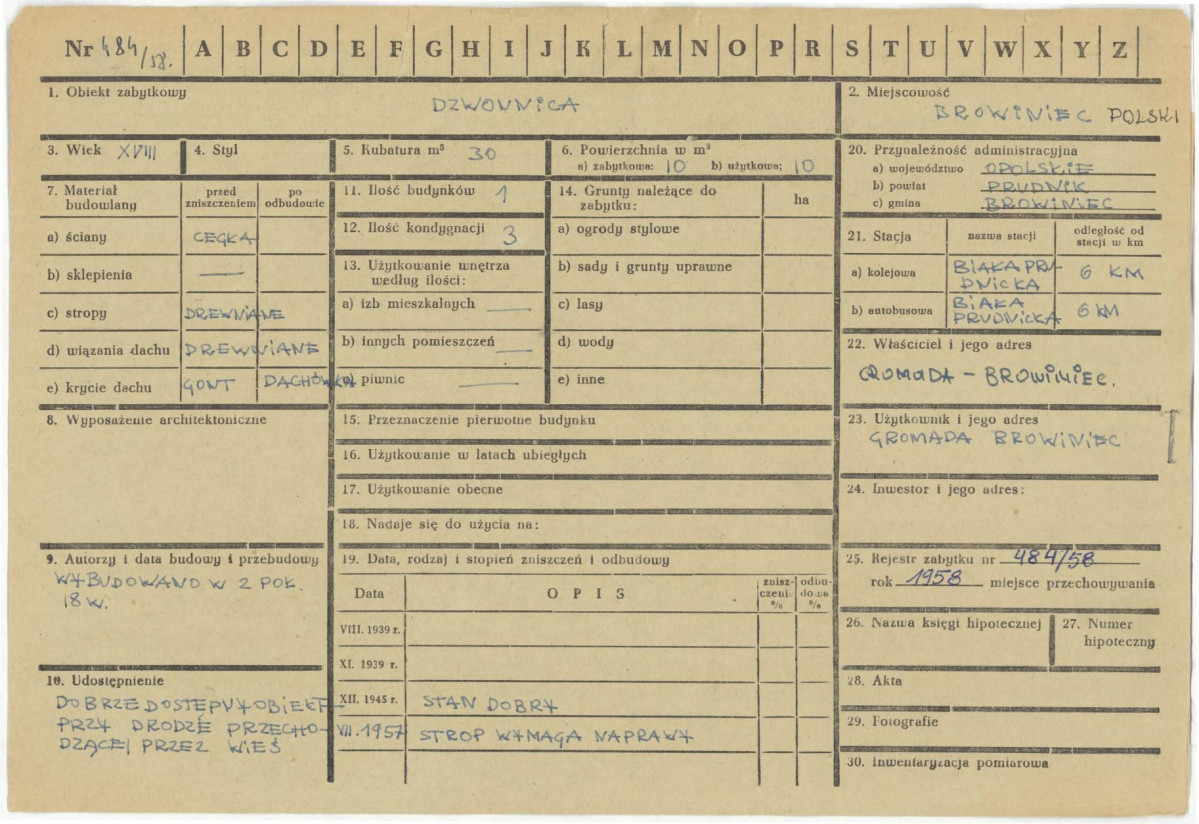 Nr 484/58. A B C D E F G H I J K L M N O P R S T U V W X Y Z
1. Obiekt zabytkowy
DZWONNICA
2. Miejscowość
BROWINIEC POLSKI
3. Wiek XVIII
4. Styl
5. Kubatura m³ 30
6. Powierzchnia w m²
a) zabytkowa: 10 b) użytkowa; 10
20. Przynależność administracyjna
a) województwo OPOLSKIE
b) powiat PRUDNIK
c) gmina BROWINIEC
7. Materiał budowlany
przed zniszczeniem
po odbudowie
a) ściany CEGŁA
b) sklepienia —
c) stropy DREWNIANE
d) wiązania dachu DREWNIANE
e) krycie dachu GONT DACHÓWKA
11. Ilość budynków 1
12. Ilość kondygnacji 3
13. Użytkowanie wnętrza
według ilości:
a) izb mieszkalnych —
b) innych pomieszczeń —
c) piwnic —
14. Grunty należące do
zabytku:
ha
a) ogrody stylowe
b) sady i grunty uprawne
c) lasy
d) wody
e) inne
21. Stacja
nazwa stacji
odległość od
stacji w km
a) kolejowa BIAŁA PRU-
DNICKA 6 KM
b) autobusowa BIAŁA
PRUDNICKA 6 KM
22. Właściciel i jego adres
GROMADA – BROWINIEC.
8. Wyposażenie architektoniczne
15. Przeznaczenie pierwotne budynku
16. Użytkowanie w latach ubiegłych
17. Użytkowanie obecne
18. Nadaje się do użycia na:
23. Użytkownik i jego adres
GROMADA BROWINIEC
24. Inwestor i jego adres:
9. Autorzy i data budowy i przebudowy
WYBUDOWANO W 2 POŁ.
18 W.
19. Data, rodzaj i stopień zniszczeń i odbudowy
Data
O P I S
znisz-
czenia
%
odbu-
dowa
%
VIII. 1939 r.
XI. 1939 r.
XII. 1945 r. STAN DOBRY
VII. 1957 STROP WYMAGA NAPRAWY
25. Rejestr zabytku nr 484/58
rok 1958 miejsce przechowywania
26. Nazwa księgi hipotecznej
27. Numer
hipoteczny
10. Udostępnienie
DOBRZE DOSTEPNY OBIEKT
PRZY DRODZE PRZECHO-
DZĄCEJ PRZEZ WIEŚ
28. Akta
29. Fotografie
30. Inwentaryzacja pomiarowa